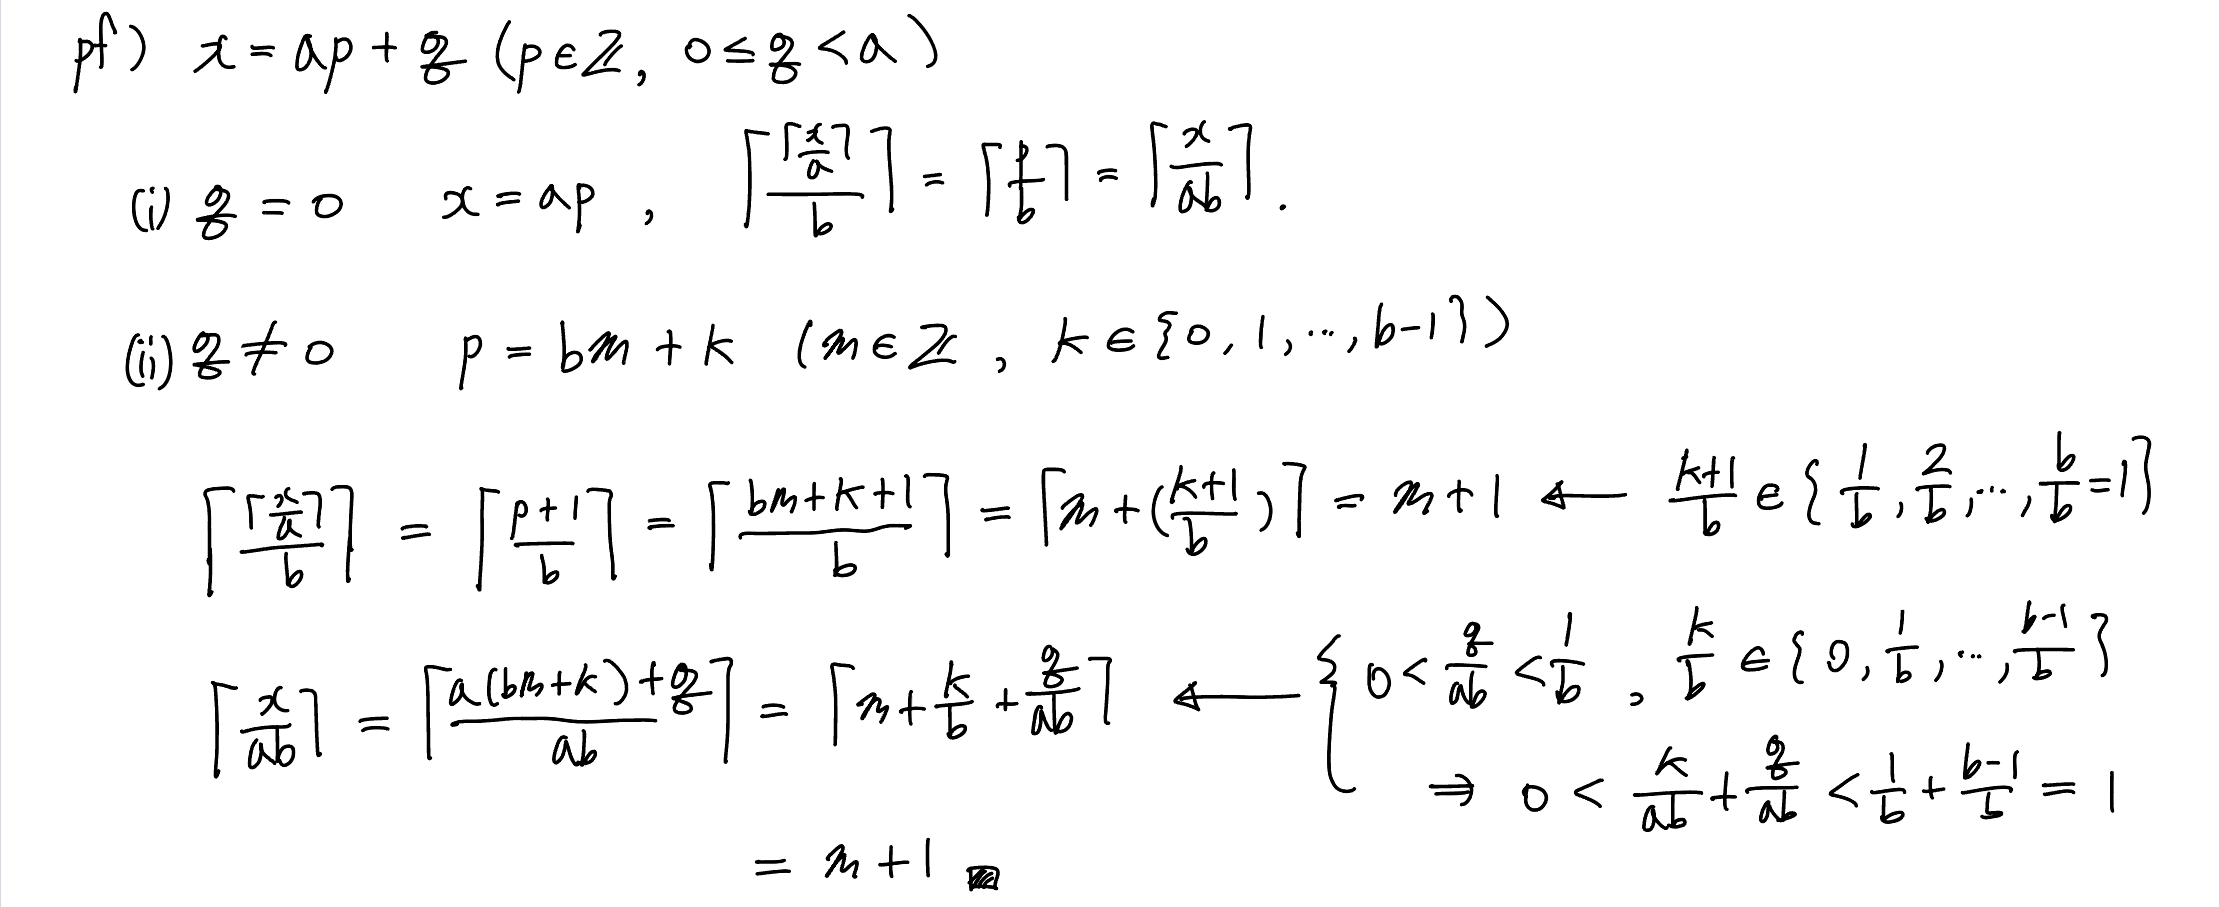 pf) x = ap + q (p∈ℤ, 0 ≤ q < a)
(i) q = 0 x = ap , ⌈⌈x/a⌉/b⌉ = ⌈p/b⌉ = ⌈x/ab⌉.
(ii) q ≠ 0 p = bm + k (m∈ℤ, k∈{0, 1, ..., b-1})
⌈⌈x/a⌉/b⌉ = ⌈(p+1)/b⌉ = ⌈(bm+k+1)/b⌉ = ⌈m + ((k+1)/b)⌉ = m+1 ← (k+1)/b ∈ {1/b, 2/b, ..., b/b = 1}
⌈x/ab⌉ = ⌈(a(bm+k)+q)/ab⌉ = ⌈m + k/b + q/ab⌉ ← { 0 < q/ab < 1/b , k/b ∈ {0, 1/b, ..., (b-1)/b}
⇒ 0 < k/ab + q/ab < 1/b + (b-1)/b = 1
= m+1 ■